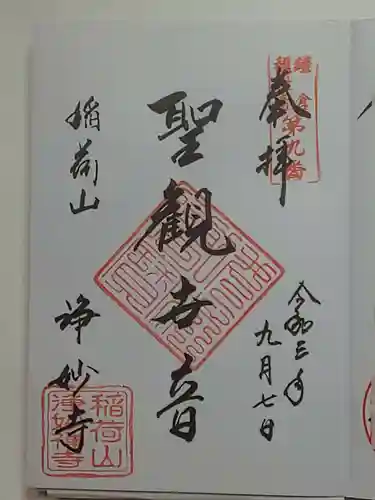 奉拝
鎌倉
第九番
令和三年
九月七日
聖観世音
稲荷山
浄妙寺
稲荷山
浄妙寺